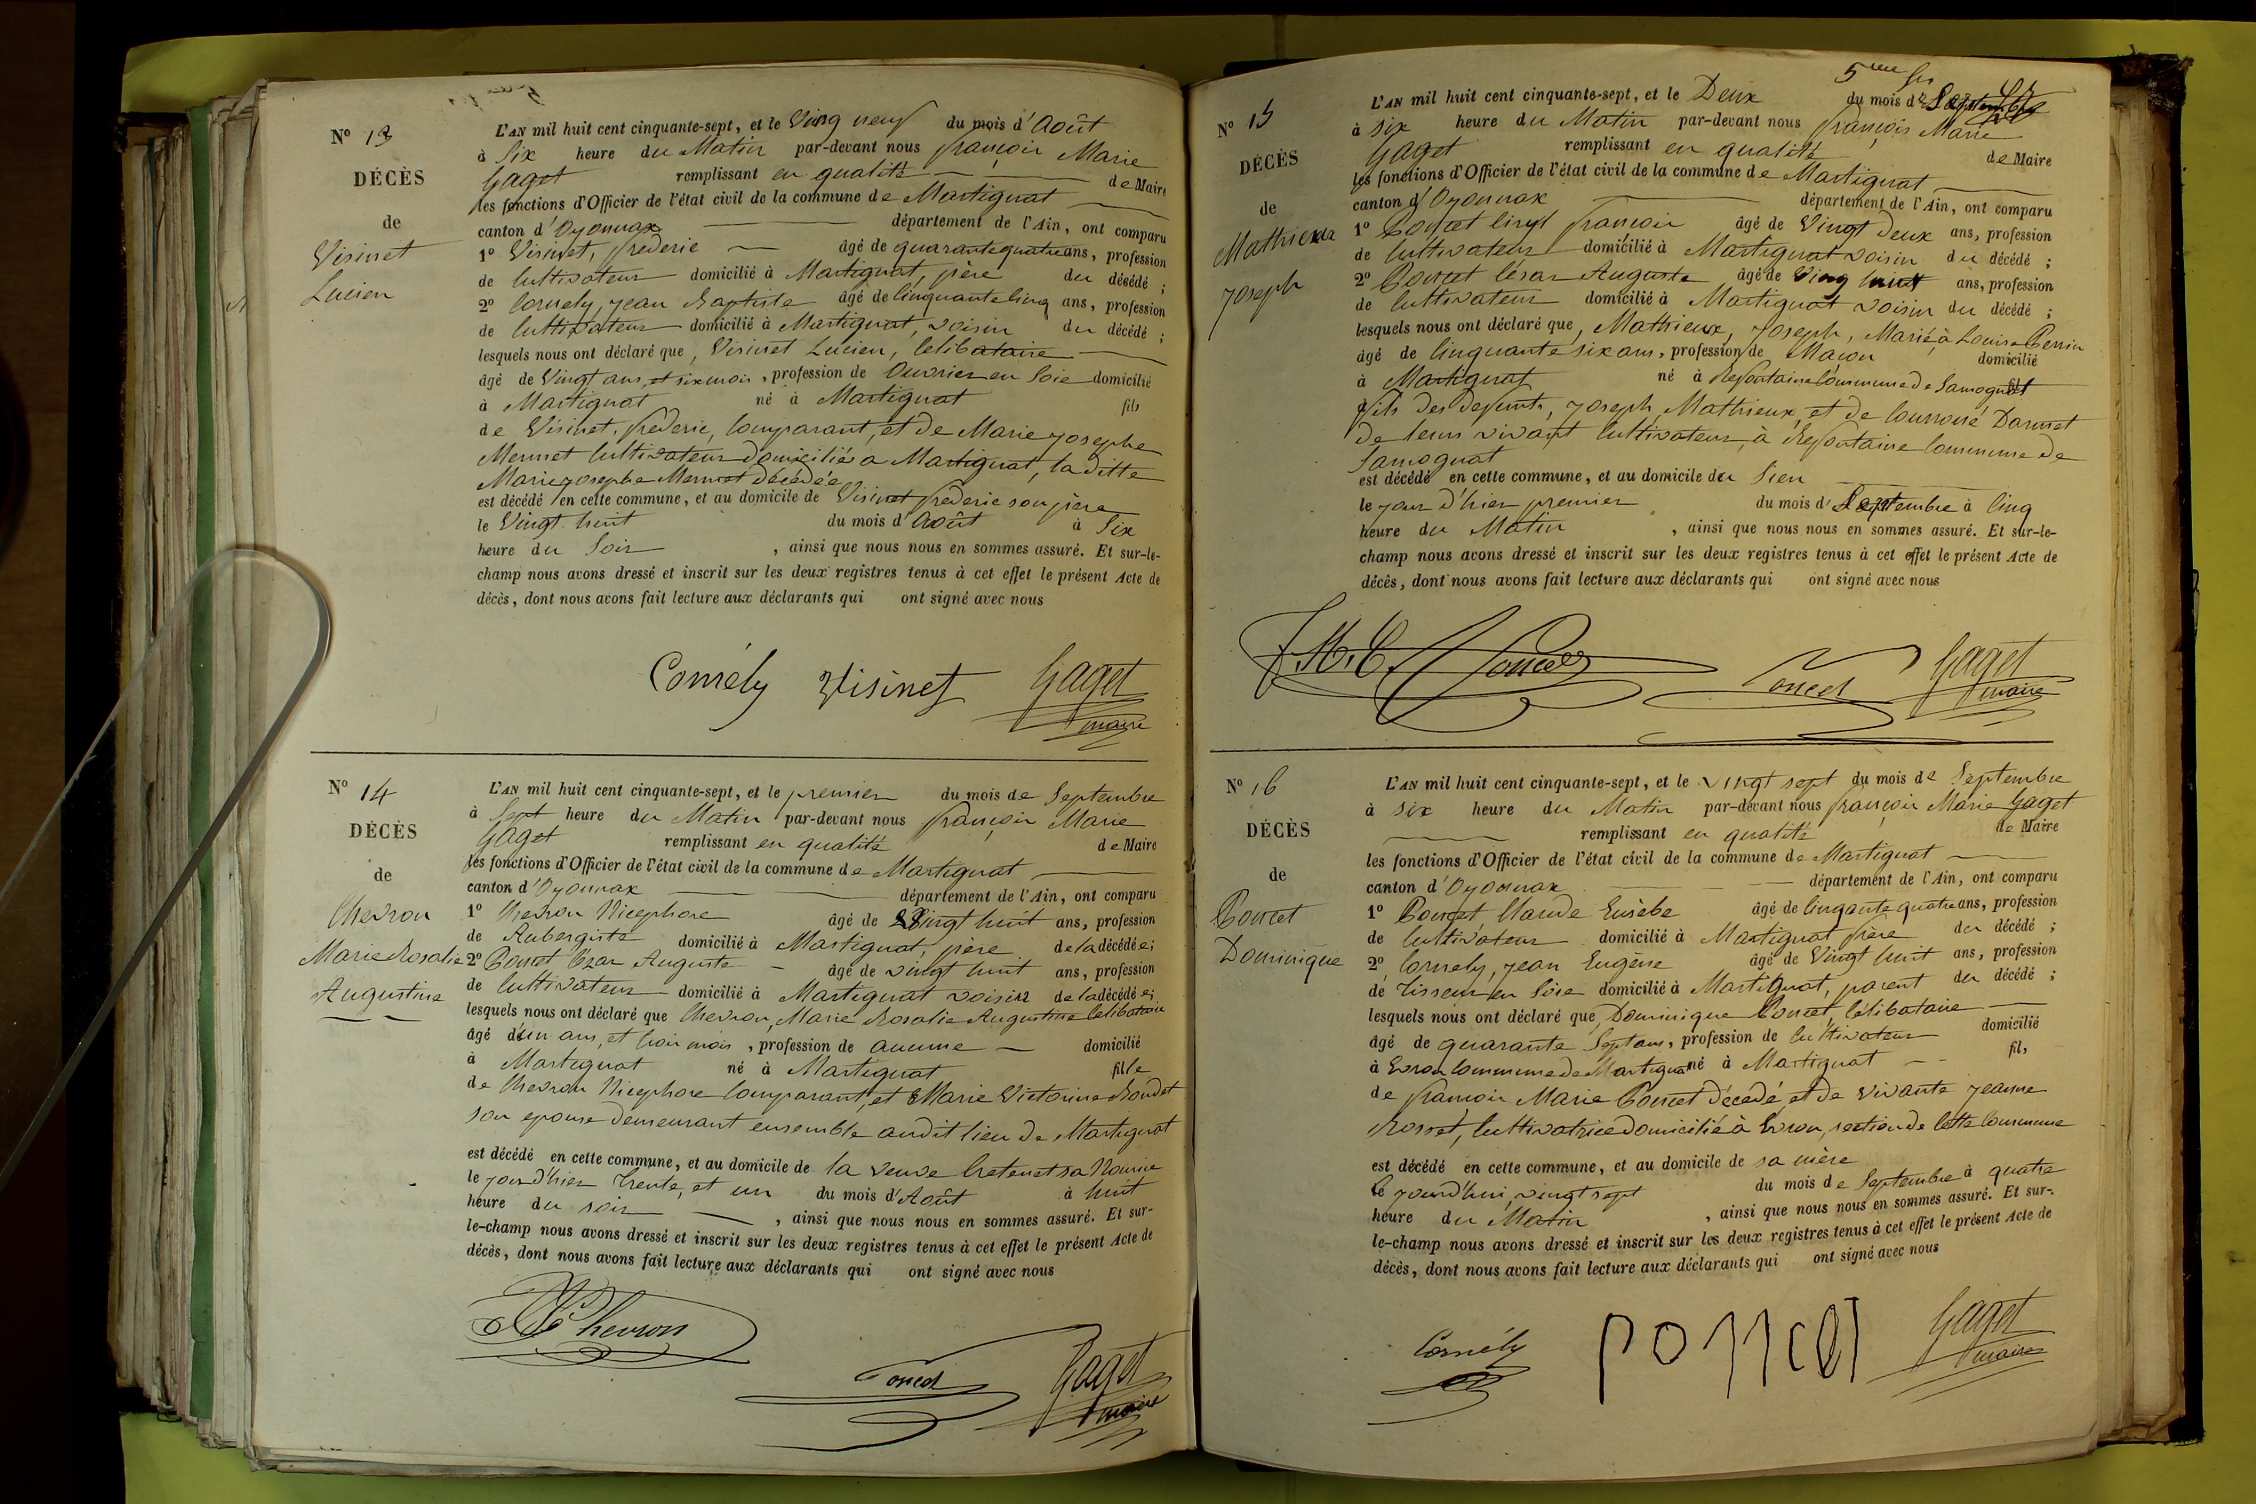 N° 13
DÉCÈS
de
Visinet
Lucien
L'AN mil huit cent cinquante-sept, et le Ving neuf du mois d'Août
à Six heure du Matin par-devant nous françois Marie
Gaget remplissant en qualité de Maire
les fonctions d'Officier de l'état civil de la commune de Martignat
canton d'Oyonnax département de l'Ain, ont comparu
1° Visinet, frederic âgé de quarante quatre ans, profession
de Cultivateur domicilié à Martignat, père du décédé ;
2° Cornely, Jean Baptiste âgé de Cinquante Cinq ans, profession
de Cultivateur domicilié à Martignat, voisin du décédé ;
lesquels nous ont déclaré que, Visinet Lucien, Celibataire
âgé de Vingt ans, et six mois, profession de Ouvrier en Soie domicilié
à Martignat né à Martignat fils
de Visinet, frederic, Comparant, et de Marie Josephe
Mermet Cultivateur domiciliés a Martignat, la ditte
Marie Josephe Mermet décédée
est décédé en cette commune, et au domicile de Visinet frederic son père
le Vingt huit du mois d'Août à Six
heure du Soir, ainsi que nous nous en sommes assuré. Et sur-le-
champ nous avons dressé et inscrit sur les deux registres tenus à cet effet le présent Acte de
décès, dont nous avons fait lecture aux déclarants qui ont signé avec nous
Cornély Visinet Gaget
maire
N° 14
DÉCÈS
de
Chevron
Marie Rosalie
Augustine
L'AN mil huit cent cinquante-sept, et le premier du mois de Septembre
à Sept heure du Matin par-devant nous françois Marie
Gaget remplissant en qualité de Maire
les fonctions d'Officier de l'état civil de la commune de Martignat
canton d'Oyonnax département de l'Ain, ont comparu
1° Chevron Nicephore âgé de Vingt huit ans, profession
de Aubergiste domicilié à Martignat, père de la décédée ;
2° Poncet Cézar Auguste âgé de vingt huit ans, profession
de Cultivateur domicilié à Martignat voisin de la décédée ;
lesquels nous ont déclaré que Chevron, Marie Rosalie Augustine Celibataire
âgé d'un ans, et trois mois, profession de aucune domicilié
à Martignat né à Martignat fille
de Chevron Nicephore Comparant, et Marie Victorine Rondet
son epouse demeurant ensemble audit lieu de Martignat
est décédé en cette commune, et au domicile de la veuve Cretenet sa Nourice
le jour d'hier trente, et un du mois d'Août à huit
heure du soir, ainsi que nous nous en sommes assuré. Et sur-
le-champ nous avons dressé et inscrit sur les deux registres tenus à cet effet le présent Acte de
décès, dont nous avons fait lecture aux déclarants qui ont signé avec nous
Chevron
Poncet Gaget
maire
5me
N° 15
DÉCÈS
de
Mathieux
Joseph
L'AN mil huit cent cinquante-sept, et le Deux du mois de Septembre
à six heure du Matin par-devant nous françois Marie
Gaget remplissant en qualité de Maire
les fonctions d'Officier de l'état civil de la commune de Martignat
canton d'Oyonnax département de l'Ain, ont comparu
1° Poncet françois âgé de Vingt Deux ans, profession
de Cultivateur domicilié à Martignat voisin du décédé ;
2° Poncet César Auguste âgé de Ving huit ans, profession
de Cultivateur domicilié à Martignat voisin du décédé ;
lesquels nous ont déclaré que, Mathieux, Joseph, Marié à Louise Perrin
âgé de Cinquante six ans, profession de Maçon domicilié
à Martignat né à Commune de Samognat
fils des defunts, Joseph, Mathieux, et de Darmet
de leurs vivant Cultivateur, à Commune de
Samognat
est décédé en cette commune, et au domicile du Sien
le jour d'hier premier du mois de Septembre à Cinq
heure du Matin, ainsi que nous nous en sommes assuré. Et sur-le-
champ nous avons dressé et inscrit sur les deux registres tenus à cet effet le présent Acte de
décès, dont nous avons fait lecture aux déclarants qui ont signé avec nous
Poncet Poncet Gaget
maire
N° 16
DÉCÈS
de
Poncet
Dominique
L'AN mil huit cent cinquante-sept, et le vingt sept du mois de Septembre
à six heure du Matin par-devant nous françois Marie Gaget
remplissant en qualité de Maire
les fonctions d'Officier de l'état civil de la commune de Martignat
canton d'Oyonnax département de l'Ain, ont comparu
1° Poncet Claude Eusèbe âgé de Cinqante quatre ans, profession
de Cultivateur domicilié à Martignat frère du décédé ;
2° Cornely, Jean Eugène âgé de Vingt huit ans, profession
de Tisseur en Soie domicilié à Martignat, parent du décédé ;
lesquels nous ont déclaré que Dominique Poncet, Célibataire
âgé de quarante Sept ans, profession de Cultivateur domicilié
à Evron Commune de Martignat né à Martignat fils
de françois Marie Poncet décédé, et de Vivante Jeanne
Rosset, Cultivatrice domicilié à Evron, section de Cette Commune
est décédé en cette commune, et au domicile de sa mère
le jourd'hui, vingt sept du mois de Septembre à quatre
heure du Matin, ainsi que nous nous en sommes assuré. Et sur-
le-champ nous avons dressé et inscrit sur les deux registres tenus à cet effet le présent Acte de
décès, dont nous avons fait lecture aux déclarants qui ont signé avec nous
Cornély poncet Gaget
maire